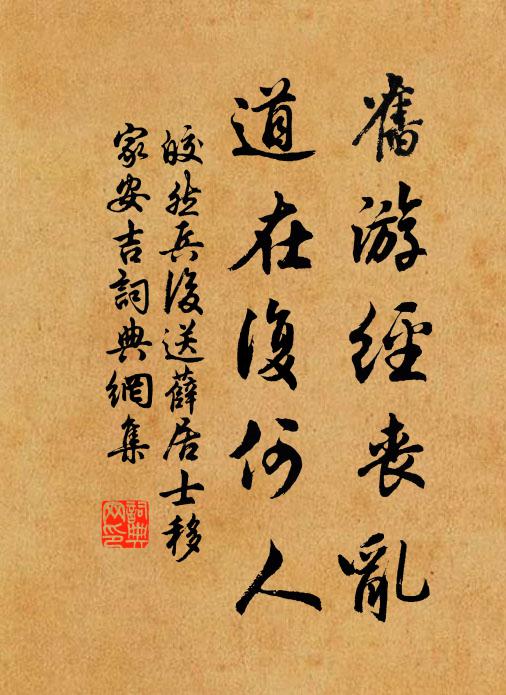 舊游經喪亂
道在復何人
皎然兵後送薛居士移
家安吉詞典網集
詞典
网印